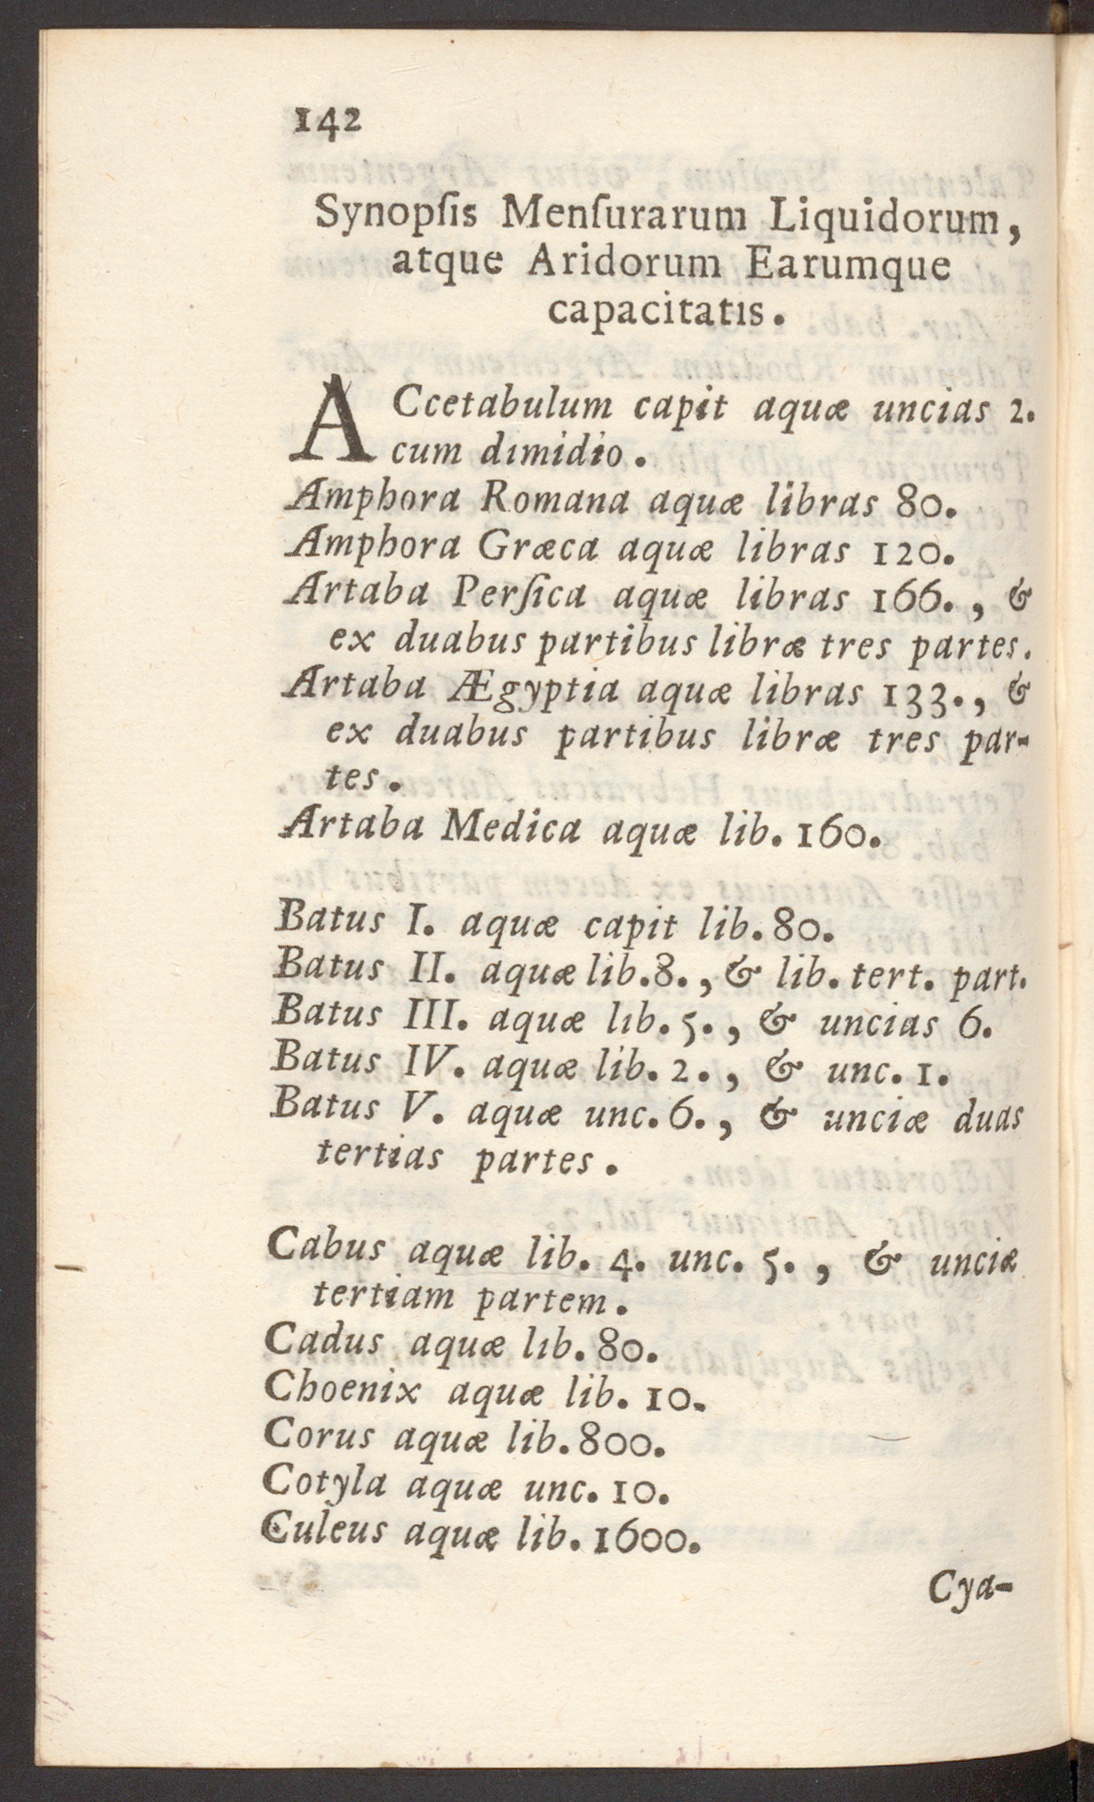 142
Synopſis Menſurarum Liquidorum,
atque Aridorum Earumque
capacitatis.
ACcetabulum capit aquæ uncias 2.
cum dimidio.
Amphora Romana aquæ libras 80.
Amphora Græca aquæ libras 120.
Artaba Perſica aquæ libras 166., &
ex duabus partibus libræ tres partes.
Artaba Ægyptia aquæ libras 133., &
ex duabus partibus libræ tres par-
tes.
Artaba Medica aquæ lib. 160.
Batus I. aquæ capit lib. 80.
Batus II. aquæ lib. 8., & lib. tert. part.
Batus III. aquæ lib. 5., & uncias 6.
Batus IV. aquæ lib. 2., & unc. 1.
Batus V. aquæ unc. 6., & unciæ duas
tertias partes.
Cabus aquæ lib. 4. unc. 5., & unciæ
tertiam partem.
Cadus aquæ lib. 80.
Choenix aquæ lib. 10.
Corus aquæ lib. 800.
Cotyla aquæ unc. 10.
Culeus aquæ lib. 1600.
Cya-